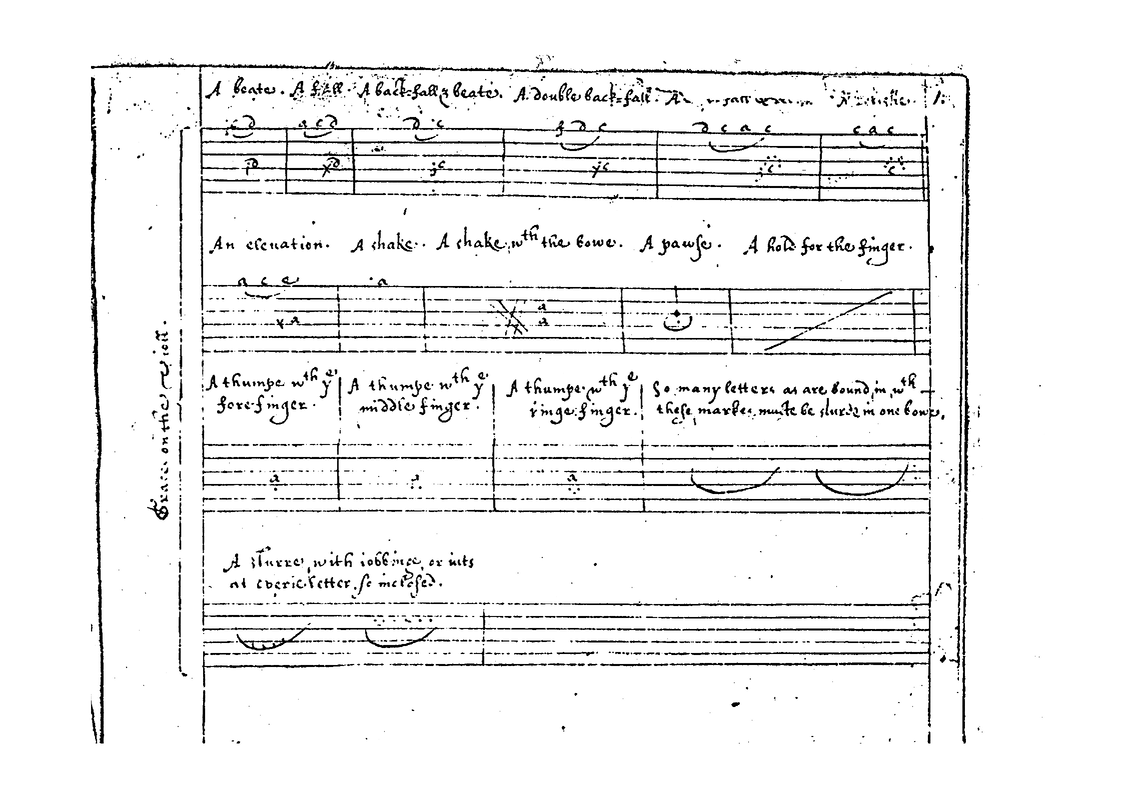 A beate. A fall. A back=fall & beate. A double back=fall.
c D a c D D c f D c D c a c c a c
D D c c c c
An elevation. A shake. A shake wth the bowe. A pawse. A hold for the finger.
a c e a
a a
a
A thumpe wth ye A thumpe wth ye A thumpe wth ye So many letters as are bound in wth
fore finger. middle finger. ringe finger. these markes muste be slurde in one bowe.
a a a
A slurre with iobbinge, or iuts
at everie letter, so inclosed.
Graces on the Violl.